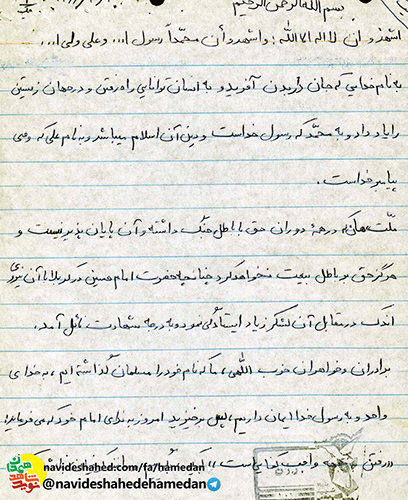 بسم الله الرحمن الرحیم
اشهدو ان لا اله الا الله؛ واشهدو أن محمّداً رسول ا... و علی ولی ا...
به نام خدایی که جان در بدن آفرید و به انسان توانایی راه رفتن و در جهان زیستن
را یاد داد و به محمّد که رسول خداست و دین آن اسلام میباشد و به نام علی که وصی
پیامبر خداست.
ملّت همیشه در دوران حق با باطل جنگ داشته و آن پایان پذیر نیست و
هرگز حق بر باطل بیعت نخواهد کرد چنانچه حضرت امام حسین در کربلا با آن نیروی
اندک در مقابل آن لشکر زیاد ایستادگی نمود و به درجه شهادت نائل آمد.
برادران و خواهران حزب اللهی، ما که نام خود را مسلمان گذاشته ایم، به خدای
واحد و به رسول خدا ایمان داریم، پس برخیزید امروز به ندای امام خود که می فرماید؛
«رفتن به جبهه واجب کفایی است،»
navideshahed.com/fa/hamedan
@navideshahedehamedan